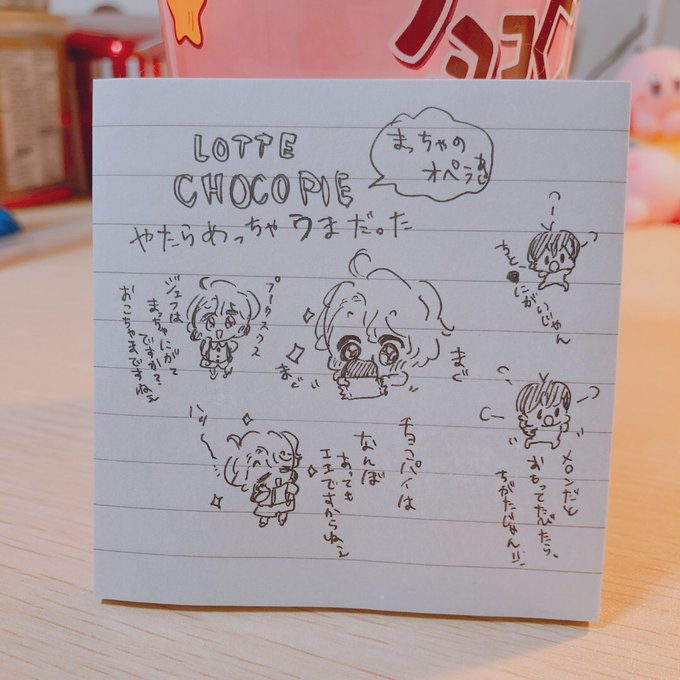 LOTTE
CHOCO PIE
まっちゃの
オペラあじ
やたらめっちゃうまだった
ちと
にがいじゃん
プークスクス
ジェフは
まっちゃにがて
ですか?
おこちゃまですねぇ
まぐ
まぐ
チョコパイは
なんぼ
あっても
エエですからねぇ
メロンだと
おもってたべたら、
ちがたじゃん!!